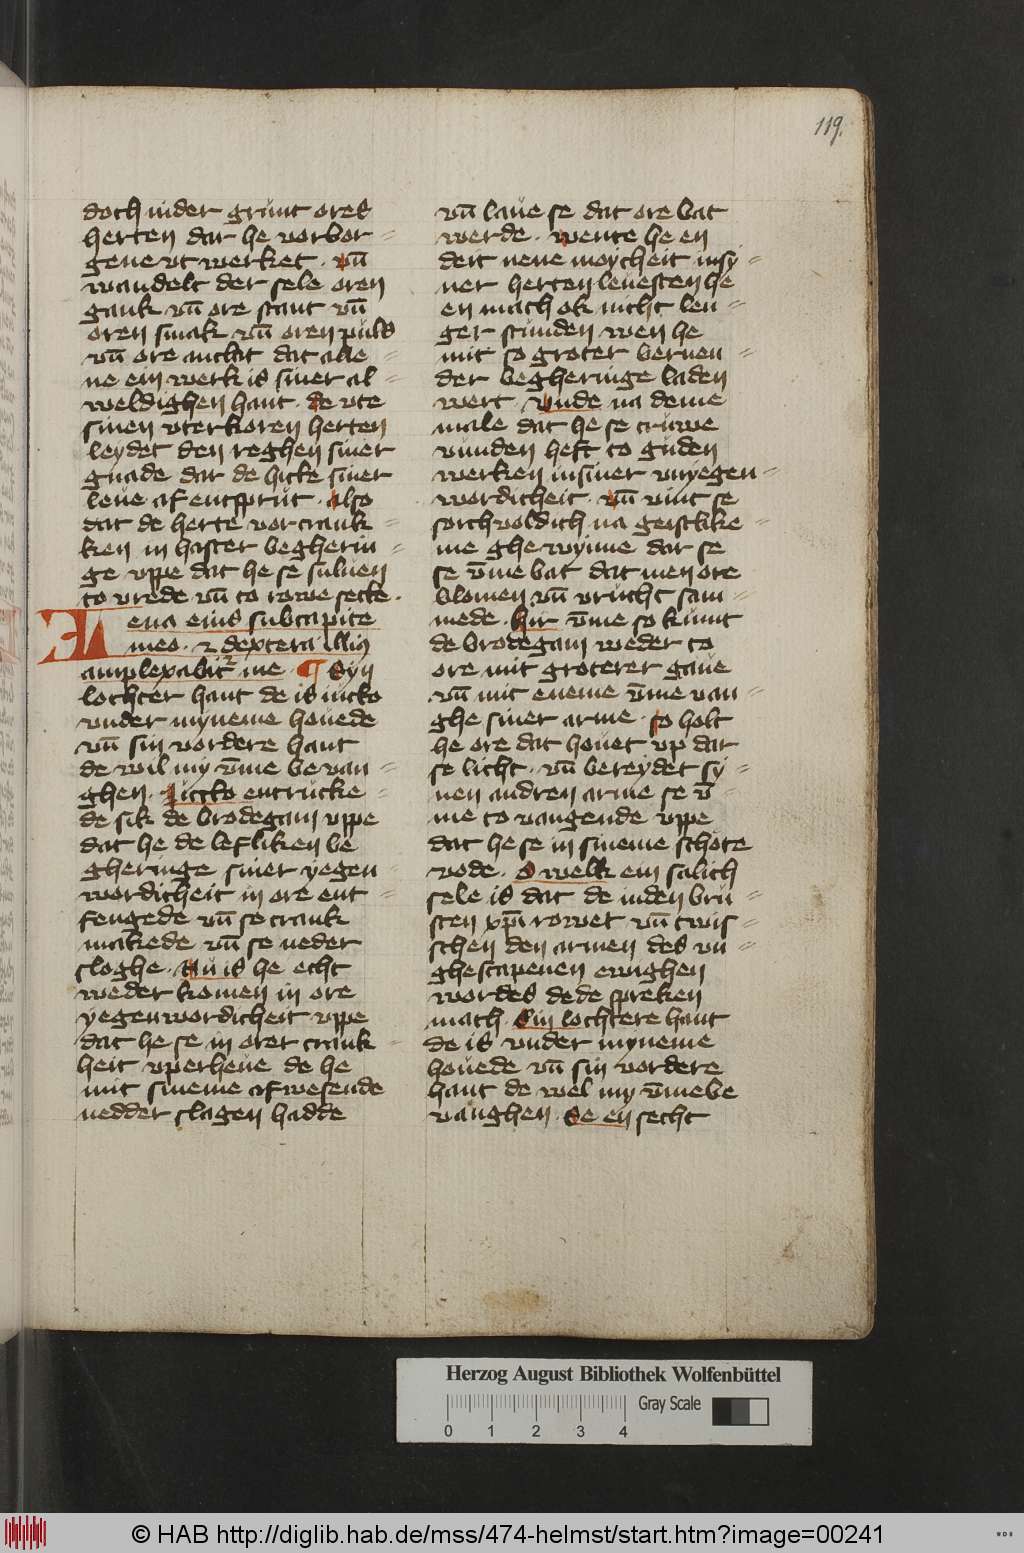 119.
doch inder grunt ores
herten dar he vorbor=
gene vt werket · vn̄
wandelt der sele oren
gank vn̄ ore stant vn̄
oren smak vn̄ oren puls
vn̄ ore anclat dat alle=
ne ein werk is siner al=
weldighen hant · de vte
sinen vterkoren herten
leydet den reghen siner
gnade dar de hicke siner
leue af entsprut · also
dat de herte vorcrank=
ken in haster begherin=
ge vppe dat he se suluen
to vrede vn̄ to rowe secke ·
Leua eius sub capite
meo · ⁊ dextera illius
amplexabit᷑ me · ¶ Syn
lochter hant de is nicko
vnder myneme houede
vn̄ sin vordere hant
de wil my v̄me be van=
ghen · Niccko entrucke=
de sik de brodegam vppe
dat he de lefliken be
gheringe siner yegen=
wordicheit in ore ent=
fengede vn̄ so crank
makede vn̄ se neder
sloghe · Nu is he echt
weder komen in ore
yegenwordicheit vppe
dat he se in orer crank=
heit vperheue de he
mit sineme afwesende
nedder slagen hadde
vn̄ laue se dat ore bat
werde · wente he en
deit nene moycheit in sy=
ner herten leuesten he
en mach ok nicht len=
ger stunden wen he
mit so groter bernen=
der begheringe laden
wert · Vnde na deme
male dat he se truwe
vunden heft to guden
werken in siner vnyegen=
wordicheit · vn̄ vint se
sorchvoldich na geistlike=
me ghewynne dar se
se v̄me bat dat men ore
blomen vn̄ vrucht sam=
mede · hir v̄me so kumt
de brodegam weder to
ore mit groterer gaue
vn̄ mit eneme v̄me van=
ghe siner arme · so holt
he ore dat houet vp dar
se licht · vn̄ bereydet sy=
nen andren arme se v̄=
me to vangende vppe
dat he se in sineme schote
vode · O welk ein salich
sele is dat de in den bru=
sten xp̄i rowet vn̄ twis=
schen den armen des vn=
ghescapenen ewighen
wordes dede spreken
mach · Sin lochtere hant
de is vnder myneme
houede vn̄ sin vordere
hant de wel my v̄me be
vanghen · Se en secht
Herzog August Bibliothek Wolfenbüttel
0 1 2 3 4 Gray Scale
© HAB http://diglib.hab.de/mss/474-helmst/start.htm?image=00241